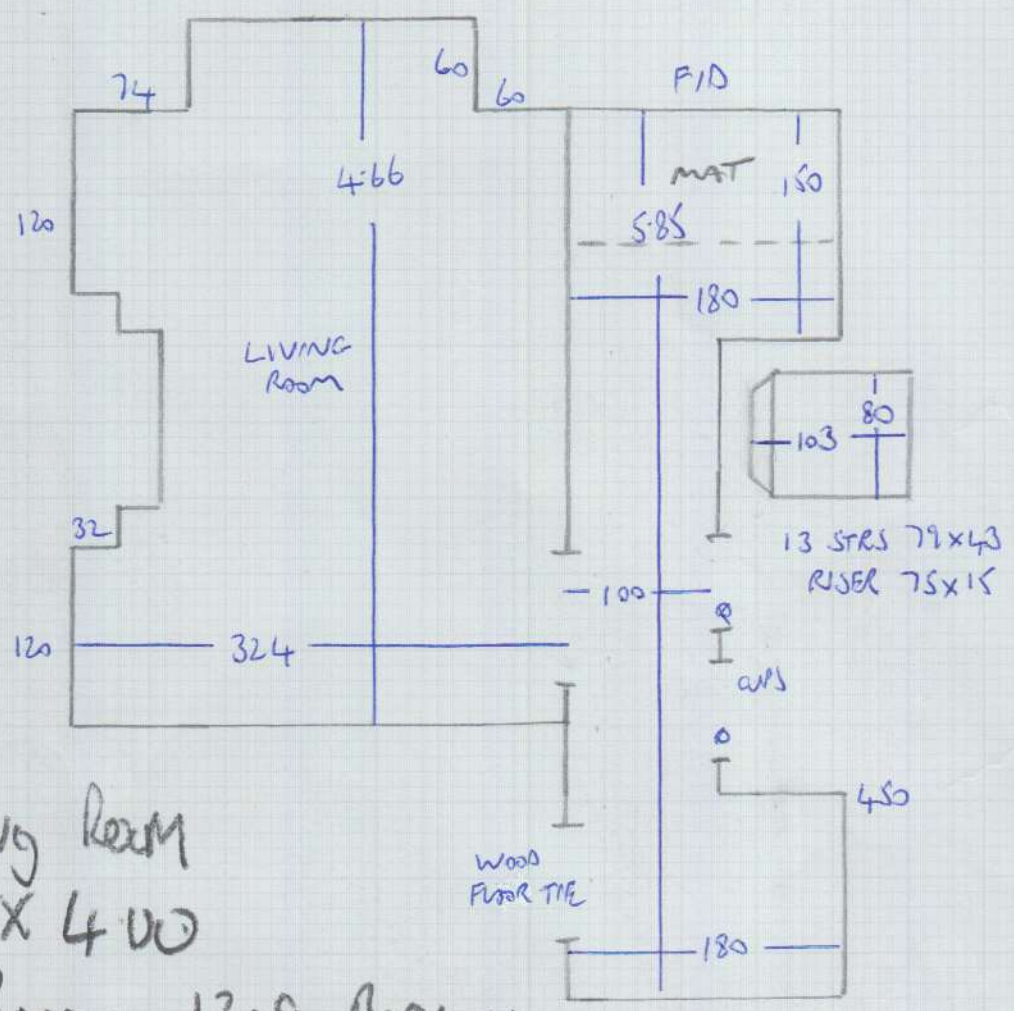 74
60
60
F/D
4.66
MAT
150
120
5.85
180
LIVING
ROOM
80
103
32
13 STRS 79x43
RISER 75x15
100
120
324
CUPS
450
Room
X 4.00
WOOD
FLOOR
180